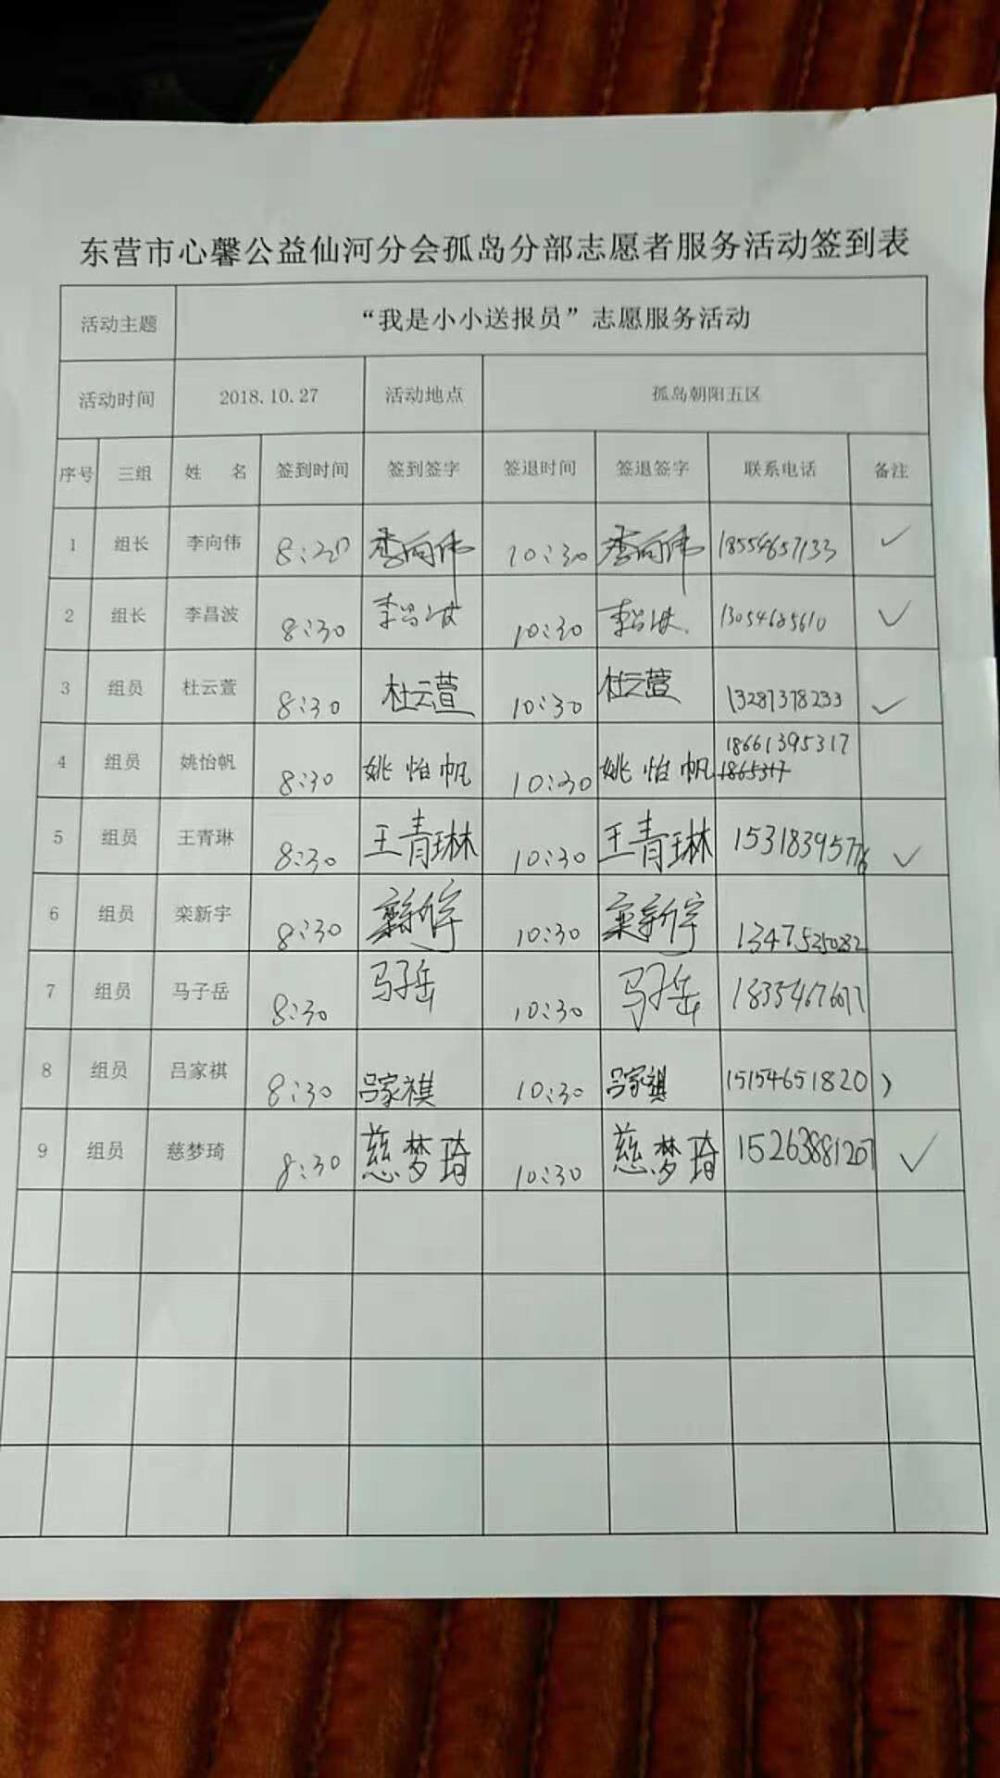 东营市心馨公益仙河分会孤岛分部志愿者服务活动签到表
活动主题 “我是小小送报员”志愿服务活动
活动时间 2018.10.27 活动地点 孤岛朝阳五区
序号 三组 姓 名 签到时间 签到签字 签退时间 签退签字 联系电话 备注
1 组长 李向伟 8:20 李向伟 10:30 李向伟 18554657133 ✓
2 组长 李昌波 8:30 李昌波 10:30 李昌波 13054685610 ✓
3 组员 杜云萱 8:30 杜云萱 10:30 杜云萱 13287378233 ✓
4 组员 姚怡帆 8:30 姚怡帆 10:30 姚怡帆 18661395317
5 组员 王青琳 8:30 王青琳 10:30 王青琳 ✓
6 组员 栾新宇 8:30 栾新宇 10:30 栾新宇 13475250282
7 组员 马子岳 8:30 马子岳 10:30 马子岳
8 组员 吕家祺 8:30 吕家祺 10:30 吕家祺 15154651820
9 组员 慈梦琦 8:30 慈梦琦 10:30 慈梦琦 15263881207 ✓